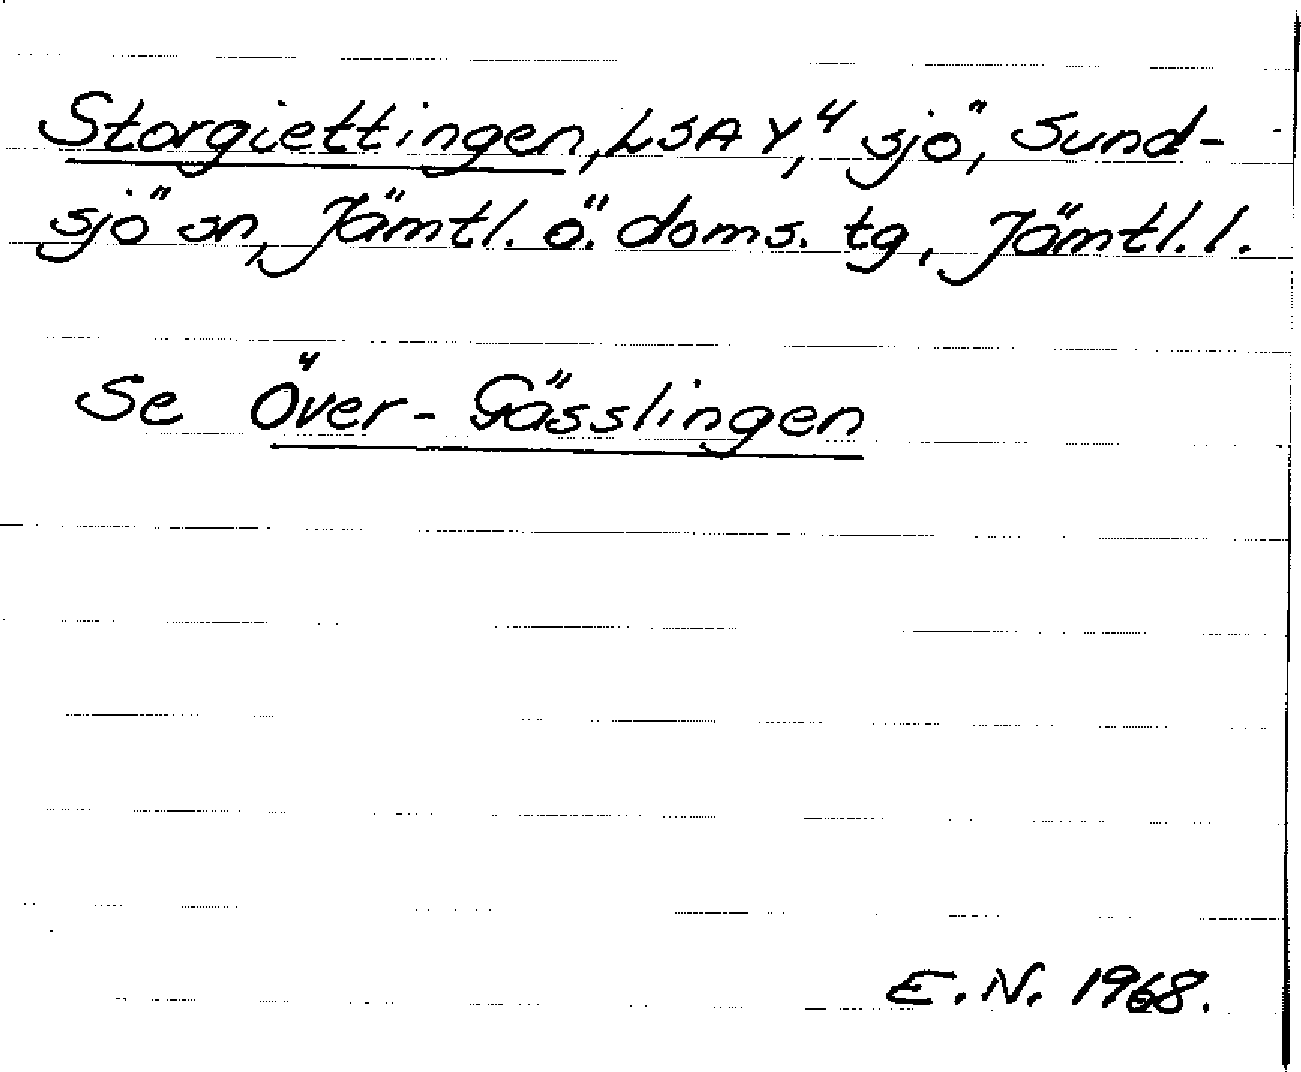 Storgiettingen, LSA Y,⁴ sjö, Sund-
sjö sn, Jämtl. ö. doms. tg, Jämtl. l.
Se Över-Gässlingen
E. N. 1968.